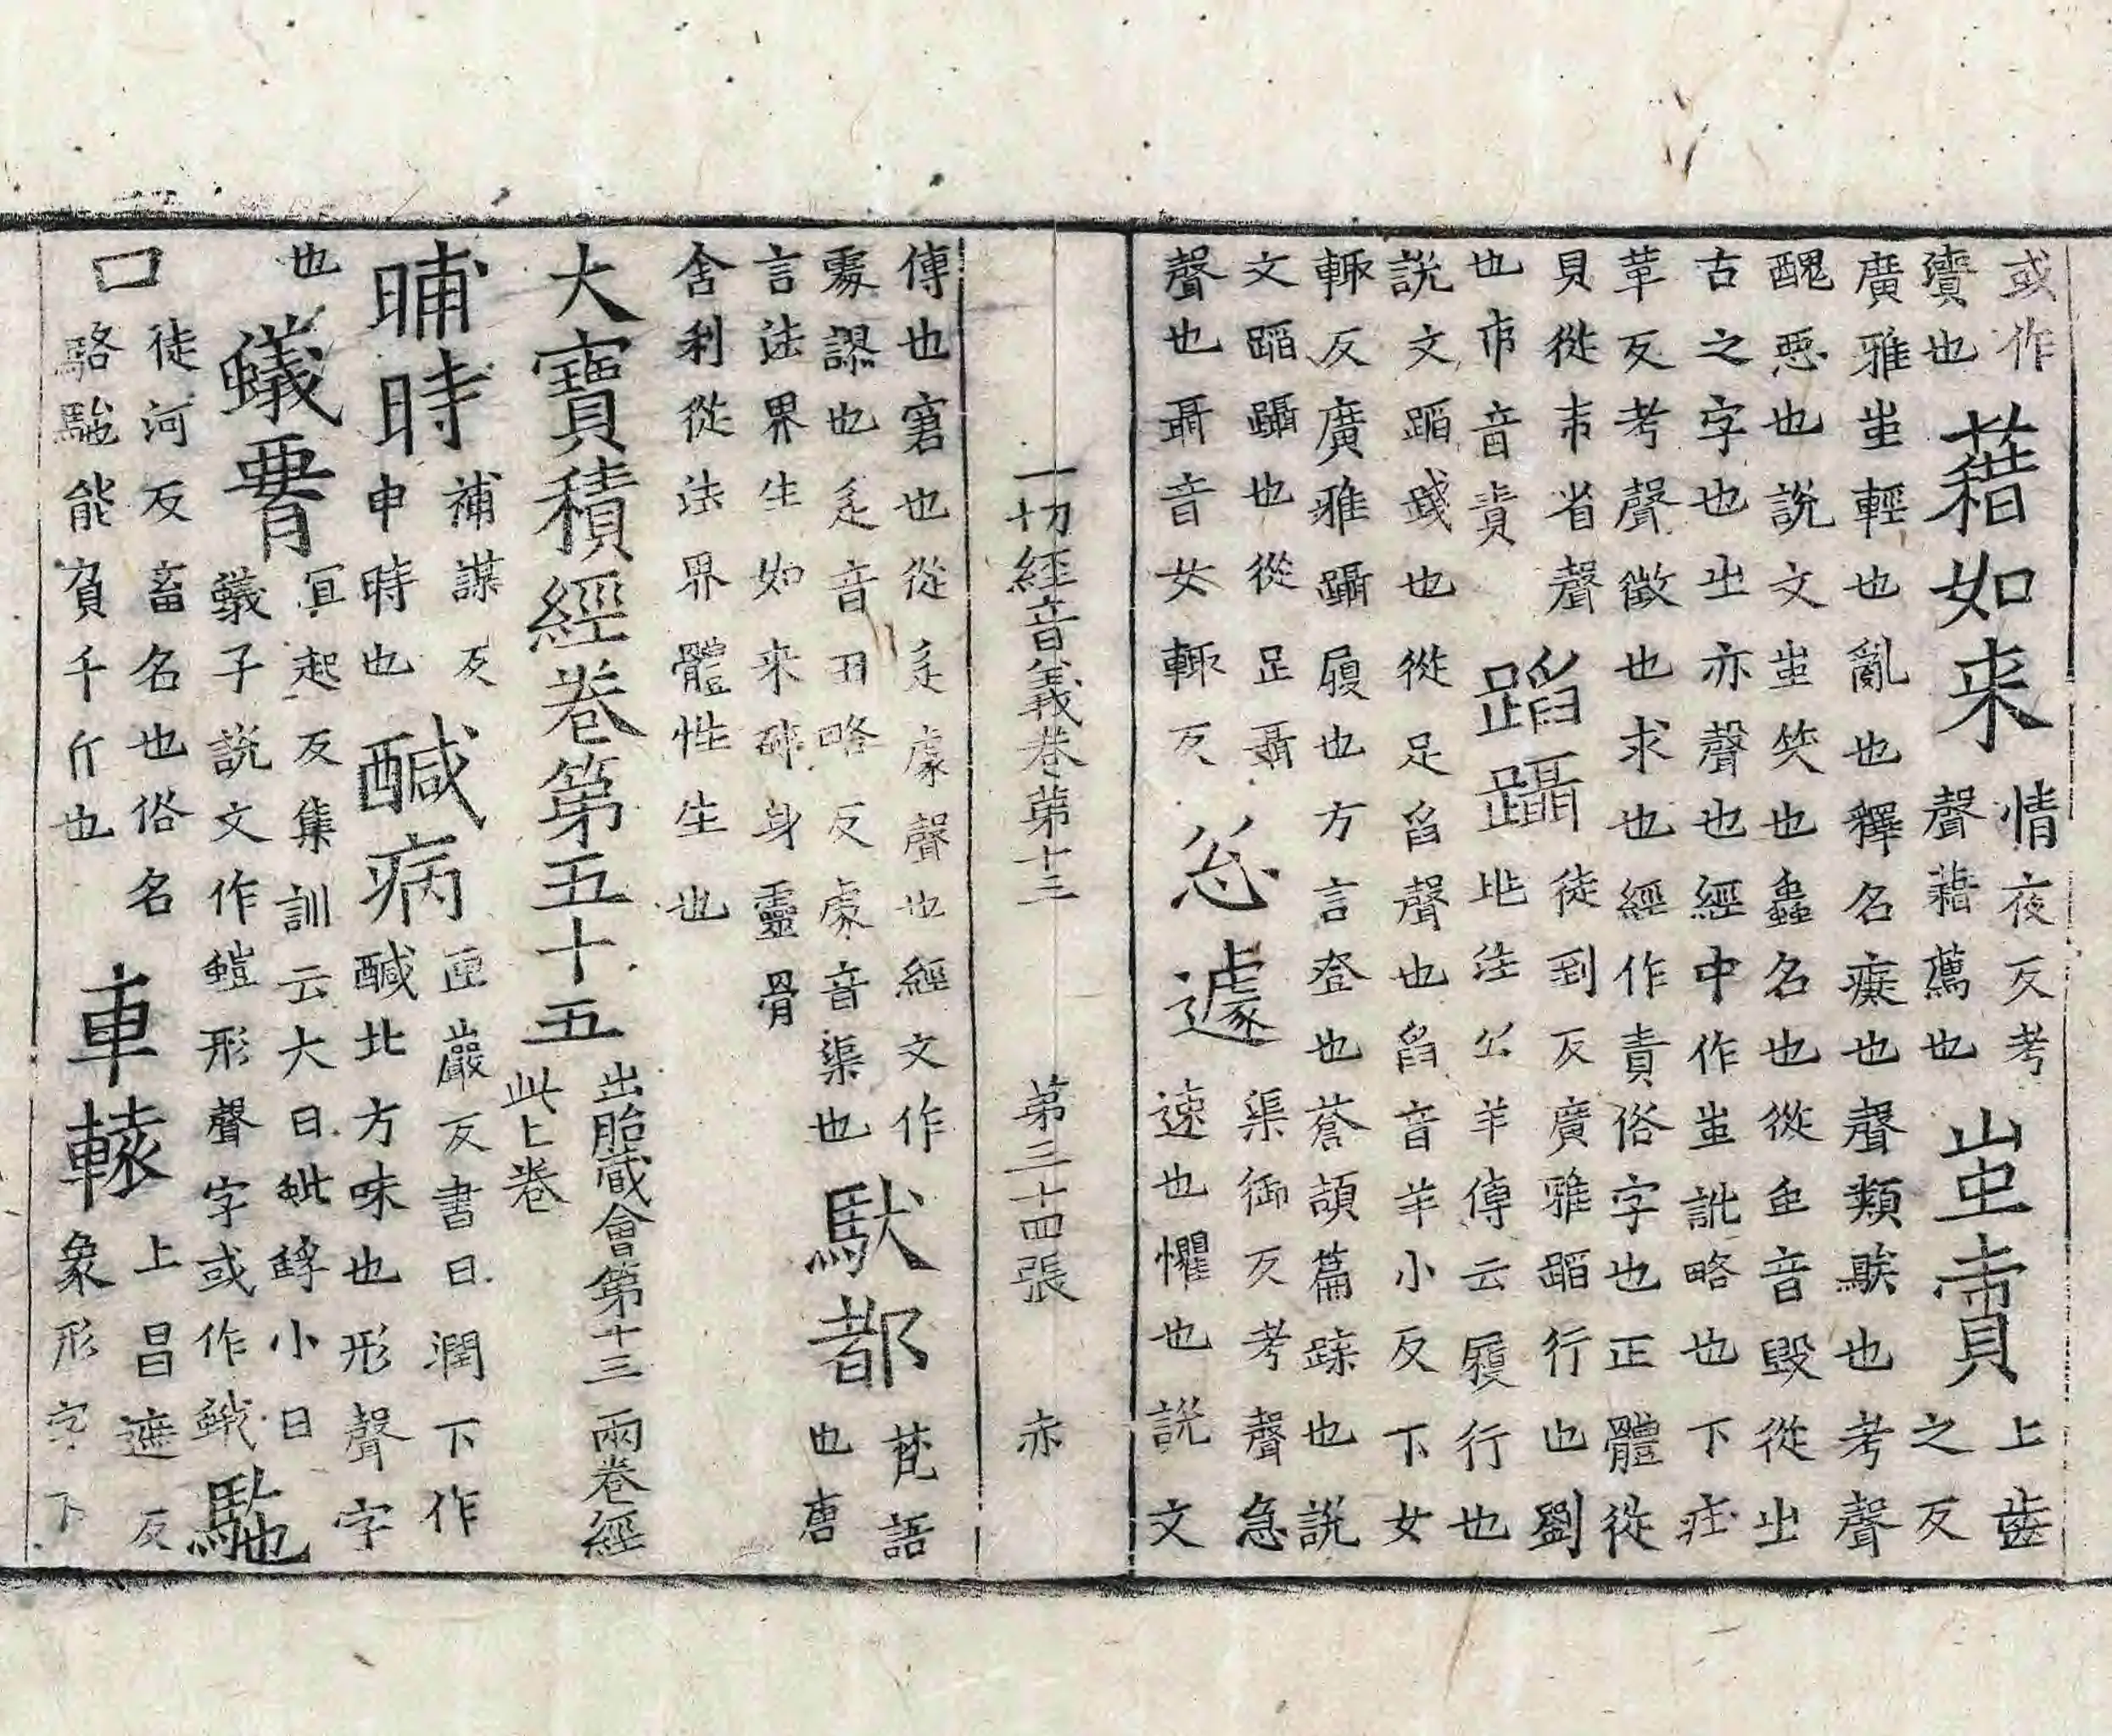 或作
賷也
藉如来
情夜反考
聲藉薦也
蚩責
上齒
之反
廣雅蚩輕也亂也釋名癡也聲類騃也考聲
醜惡也說文蚩笑也蟲名也從虫音毁從㞢
古之字也㞢亦聲也經中作蚩訿略也下疰
革反考聲徵也求也經作責俗字也正體從
貝從朿省聲
也朿音責
蹈躡
徒到反廣雅蹈行也劉
兆注公羊傳云履行也
說文蹈踐也從足舀聲也舀音羊小反下女
輒反廣雅躡履也方言登也蒼頡篇躁也說
文蹈躡也從足聶
聲也聶音女輒反
怱遽
渠御反考聲急
速也懼也說文
一切經音義卷第十三　第三十四張　赤
傳也窘也從辵豦聲也經文作
㔧謬也辵音丑略反豦音渠也
馱都
梵語
也唐
言法界生如来碎身靈骨
舍利從法界體性生也
大寶積經卷第五十五
出胎藏會第十三兩卷經
此上卷
晡時
補謀反
申時也
醎病
匣巖反書曰潤下作
醎北方味也形聲字
也
蟻
冝起反集訓云大曰蚍蜉小曰
蟻子說文作螘形聲字或作蛾
馳
口
徒河反畜名也俗名
駱馳能負千斤也
車轅
上昌遮反
象形字下